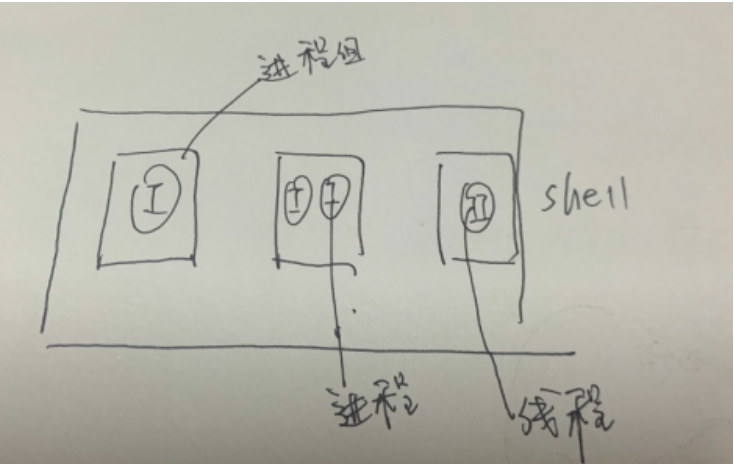 进程组
I
I I
II
shell
进程
线程